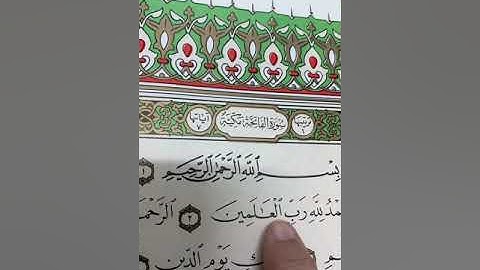 سورة الفاتحة مكية
آياتها ٧
بِسْمِ ٱللَّهِ ٱلرَّحْمَٰنِ ٱلرَّحِيمِ ١
لِلَّهِ رَبِّ ٱلْعَٰلَمِينَ ٢
يَوْمِ ٱلدِّينِ